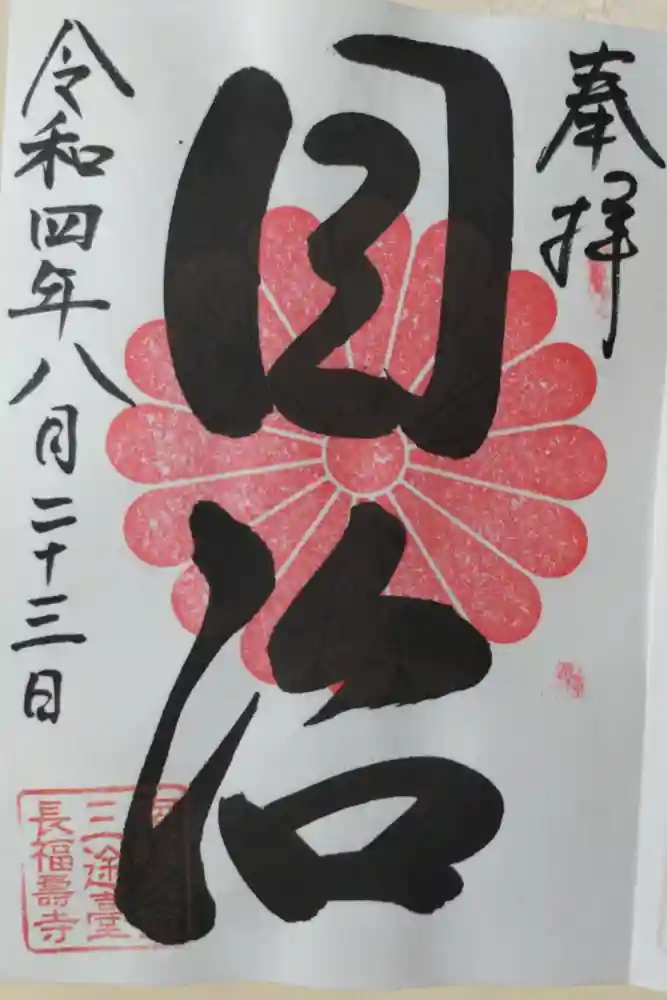 奉拝
同治
令和四年八月二十三日
三途臺
長福壽寺